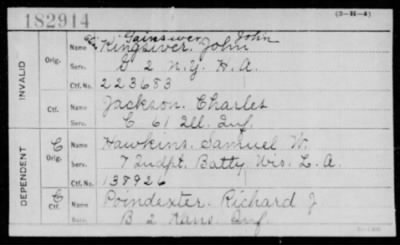 182914
(3—H—4)
Gainsiver John
INVALID Orig. Name Kingsiver, John
Serv. G 2 N.Y. H.A.
Ctf. No. 223683
Ctf. Name Jackson, Charles
Serv. C 61 Ill. Inf.
DEPENDENT C Orig. Name Hawkins, Samuel W.
Serv. 7 Indpt. Batty Wis. L.A.
Ctf. No. 138926
C Ctf. Name Poindexter, Richard J
Serv. B 2 Kans. Inf.